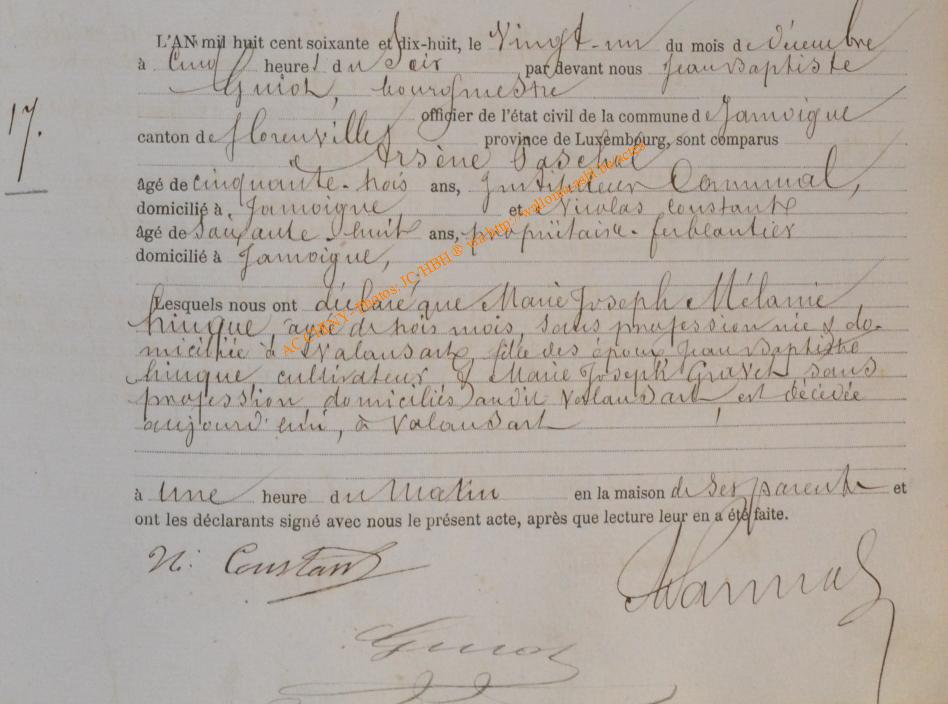 L'AN mil huit cent soixante et dix-huit, le Vingt-un du mois de décembre
à Cinq heures du Soir par devant nous Jean Baptiste
Guiot, bourgmestre
officier de l'état civil de la commune de Jamoigne
17.
canton de florenville province de Luxembourg, sont comparus
Arsène
âgé de cinquante-trois ans, Instituteur Communal,
domicilié à Jamoigne et Nicolas Constant
âgé de Soixante-huit ans, propriétaire-ferblantier
domicilié à Jamoigne,
Lesquels nous ont déclaré que Marie Joseph Mélanie
hinque agée de trois mois, sans profession née & do-
miciliée à Valansart, fille des époux Jean Baptiste
hinque cultivateur & Marie Joseph Gravet sans
profession domiciliés audit Valansart, est décédée
aujourd'hui, à Valansart
à Une heure du Matin en la maison de ses parents et
ont les déclarants signé avec nous le présent acte, après que lecture leur en a été faite.
N. Constant
Guiot
AC CHINY - Photos JC-HBH © via http://